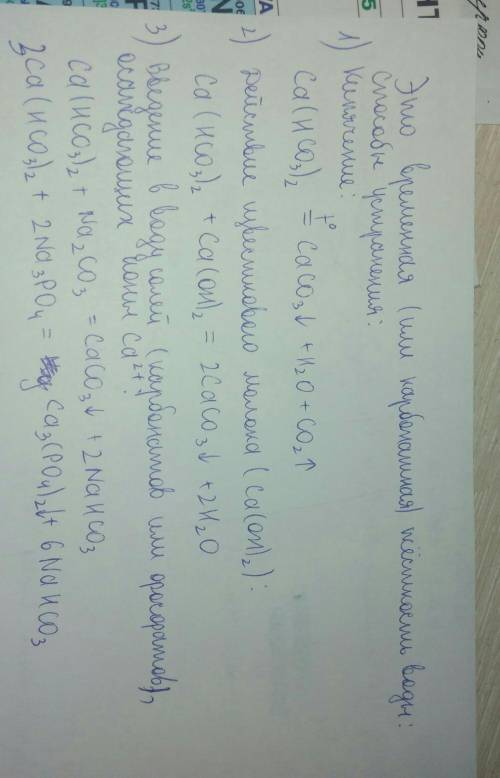 Это временная (или карбонатная) жёсткость воды:
Способы устранения:
1) Кипячение:
Ca(HCO₃)₂ t°= CaCO₃↓ + H₂O + CO₂↑
2) Действие известкового молока (Ca(OH)₂):
Ca(HCO₃)₂ + Ca(OH)₂ = 2CaCO₃↓ + 2H₂O
3) Введение в воду солей (карбонатов или фосфатов),
осаждающих ионы Ca²⁺:
Ca(HCO₃)₂ + Na₂CO₃ = CaCO₃↓ + 2NaHCO₃
3Ca(HCO₃)₂ + 2Na₃PO₄ = Ca₃(PO₄)₂↓ + 6NaHCO₃